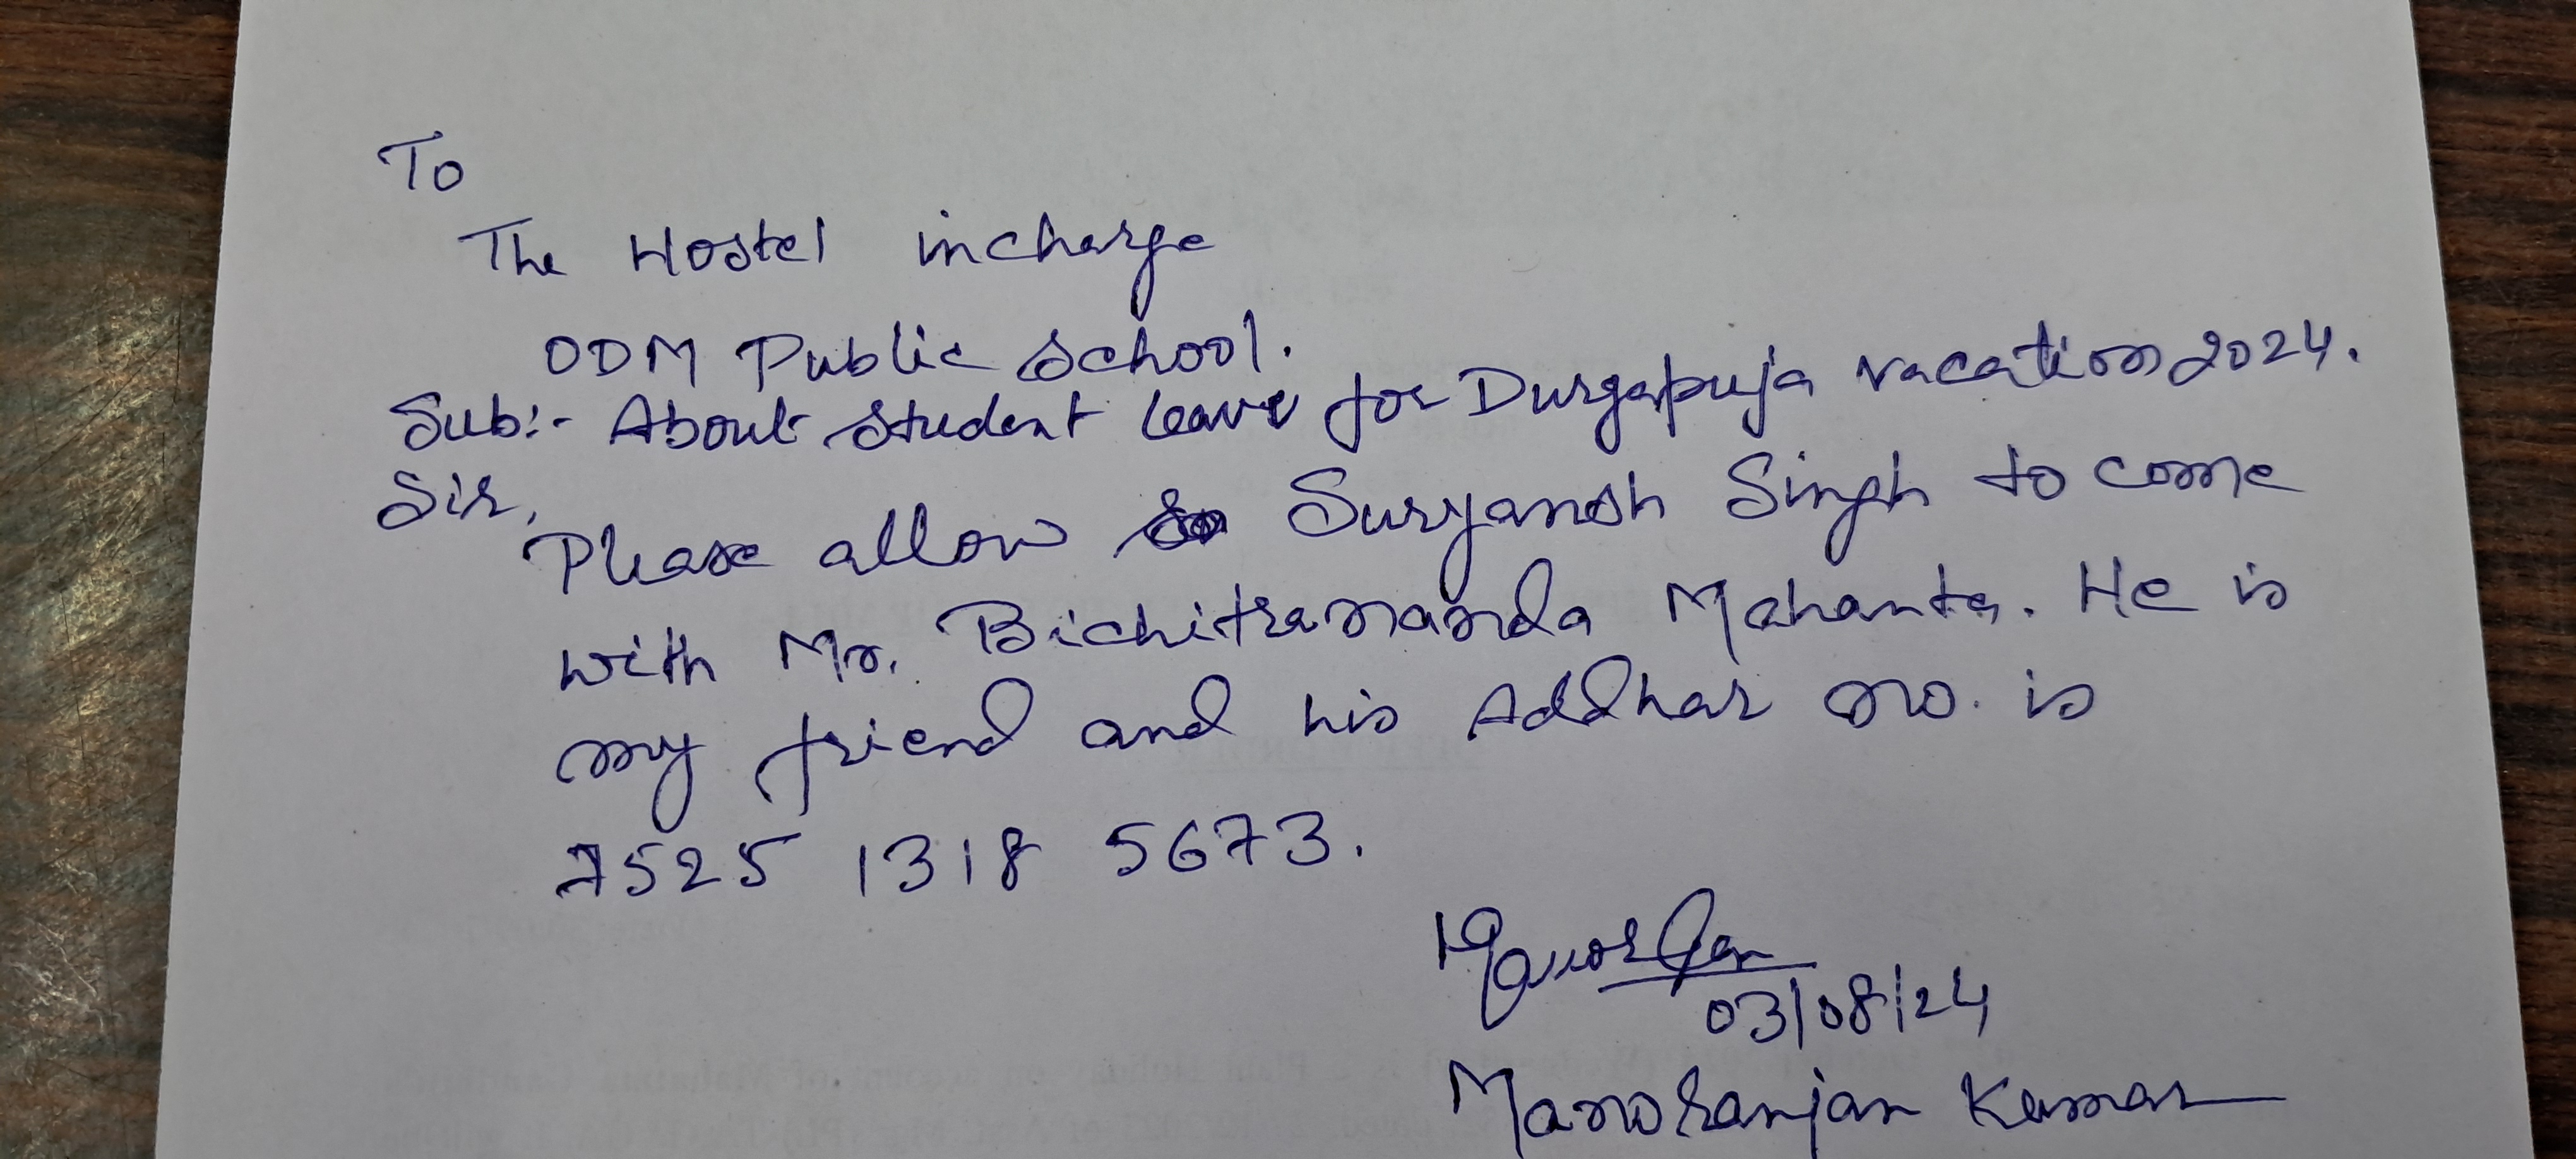 To
The Hostel incharge
ODM Public School.
Sub:- About student leave for Durgapuja vacation 2024.
Sir,
Please allow Suryansh Singh to come
with Mr. Bichitrananda Mahanta. He is
my friend and his Addhar no. is
7525 1318 5673.
03/08/24
Manoranjan Kumar